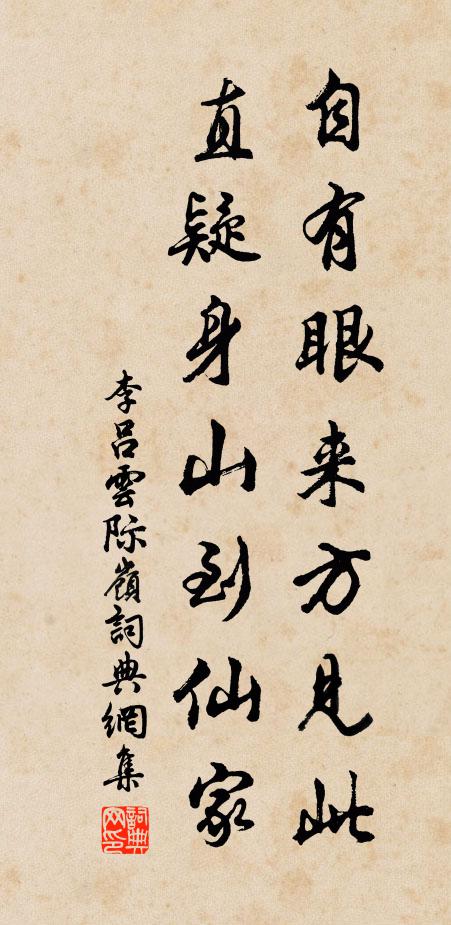 自有眼来方見此
直疑身山到仙家
李吕雲际嶺詞典網集
詞典网印